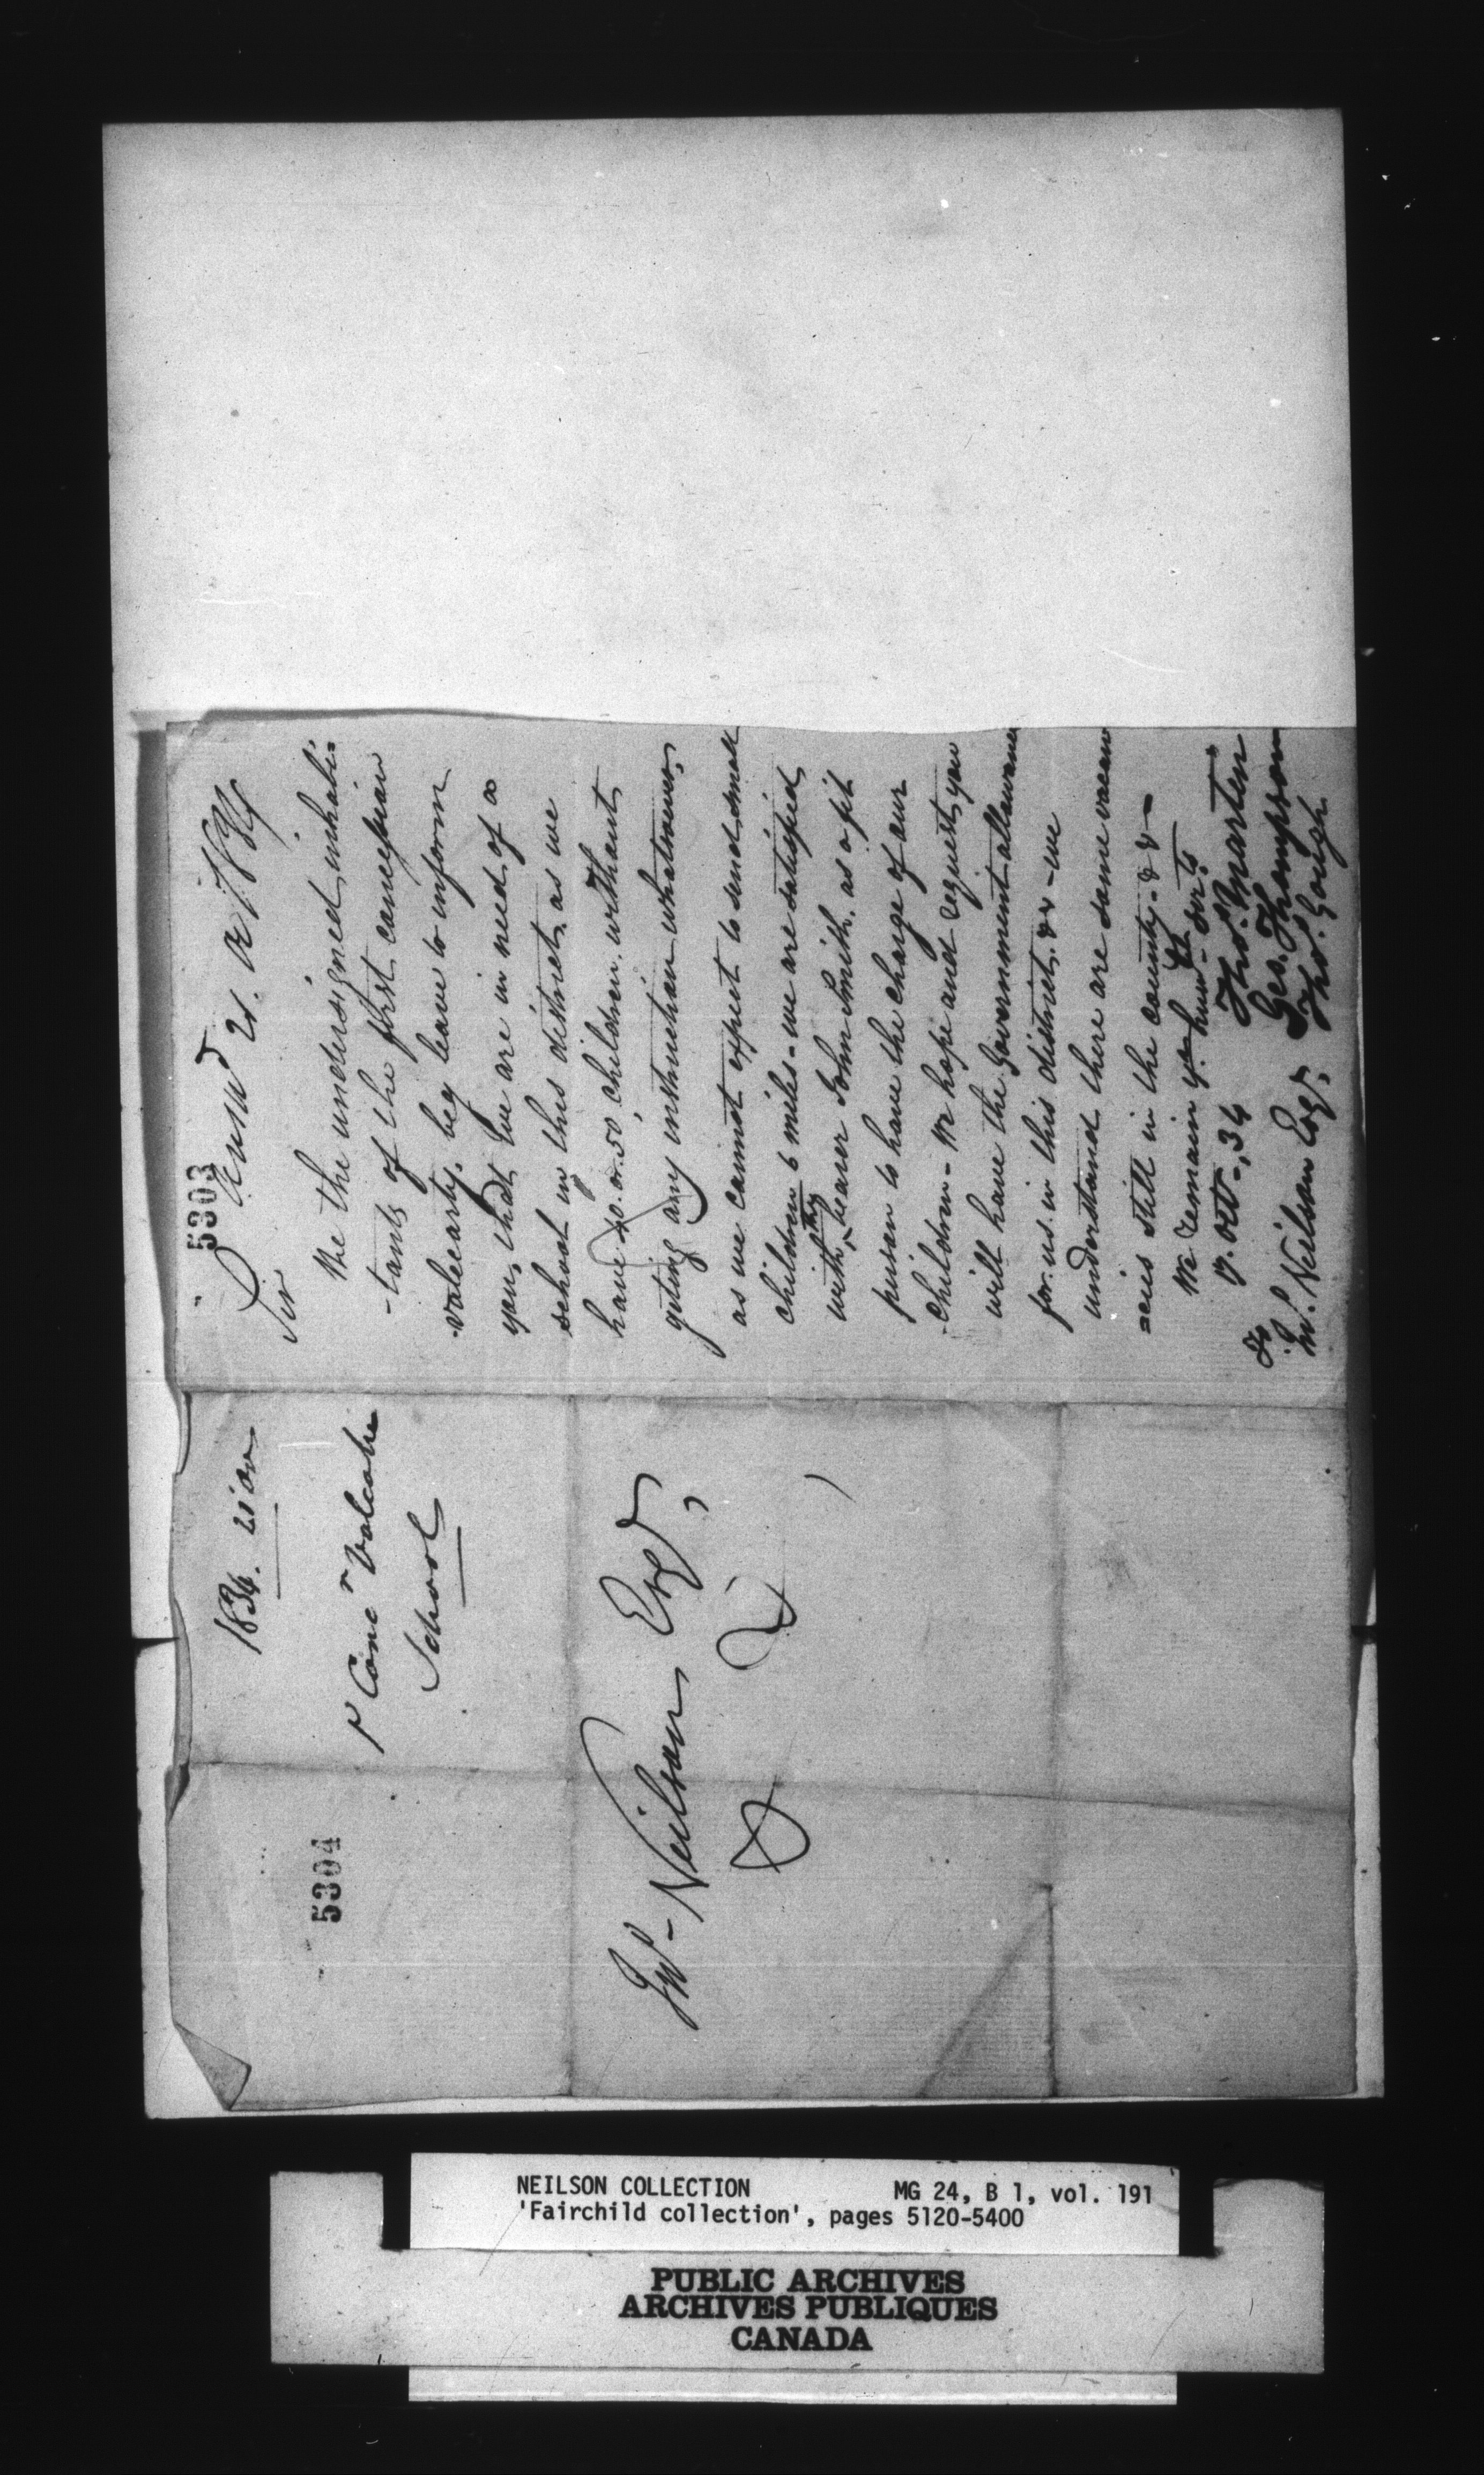 5303
Answd 21. Oct 1834
Sir
We the undersigned inhabi=
-tants of the first concession
-valcearty, beg leave to inform
you, that we are in need of a
school in this district, as we
have 40. or. 50, children. without,
geting any instruction whatsoever,
as we cannot expect to send small
children 6 miles - we are satisfied
with the bearer John Smith. as a fit
person to have the charge of our
-children - We hope and request, you
will have the Government allowance
for. us. in this district. && - we
understand there are some vacan
=cies still in the county - && -
We remain yr humbe Serts
Thos. Marten
17. Oct -, 34
Geo. Thompson
Thos. Gough
To
Jn°. Neilson Esqr.
1834. 21 Oct
1 Conc Valcatie
School
5304
Jn° - Neilson Esqr,
NEILSON COLLECTION MG 24, B 1, vol. 191
'Fairchild collection', pages 5120-5400
PUBLIC ARCHIVES
ARCHIVES PUBLIQUES
CANADA